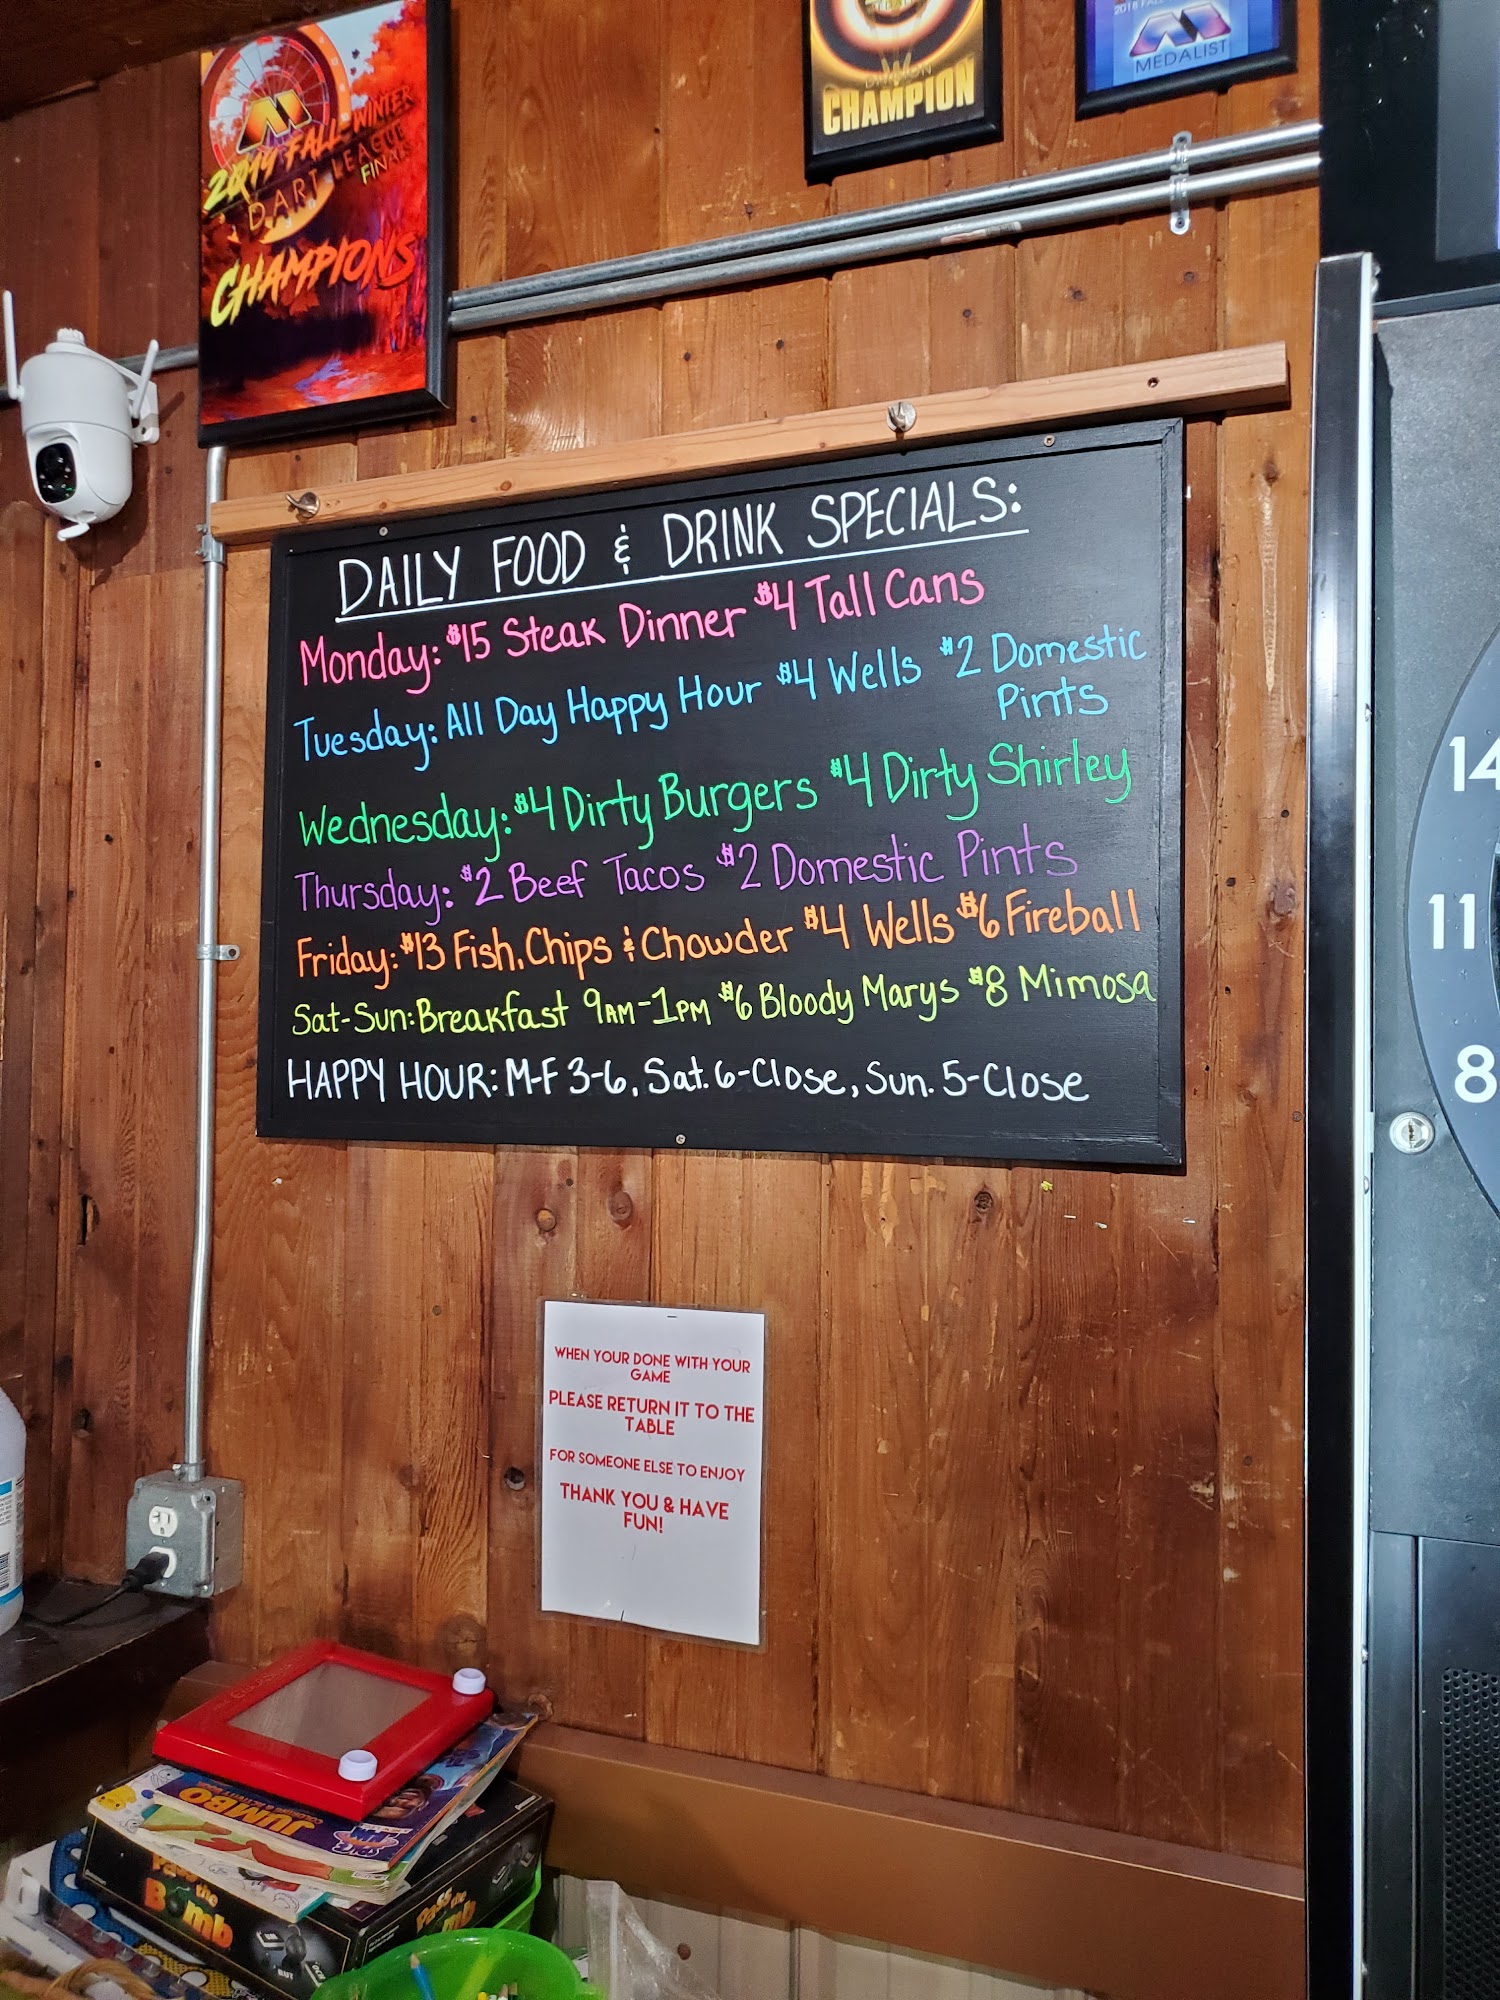 2018 FALL
MEDALIST
DIVISION
CHAMPION
2019 FALL-WINTER
DART LEAGUE
FINALS
CHAMPIONS
DAILY FOOD & DRINK SPECIALS:
Monday: $15 Steak Dinner $4 Tall Cans
Tuesday: All Day Happy Hour $4 Wells $2 Domestic
Pints
Wednesday: $4 Dirty Burgers $4 Dirty Shirley
Thursday: $2 Beef Tacos $2 Domestic Pints
Friday: $13 Fish, Chips & Chowder $4 Wells $6 Fireball
Sat-Sun: Breakfast 9AM-1PM $6 Bloody Marys $8 Mimosa
HAPPY HOUR: M-F 3-6, Sat. 6-Close, Sun. 5-Close
14
11
8
WHEN YOUR DONE WITH YOUR
GAME
PLEASE RETURN IT TO THE
TABLE
FOR SOMEONE ELSE TO ENJOY
THANK YOU & HAVE
FUN!
JUMBO
Pass the
Bomb
Pass the
Bomb